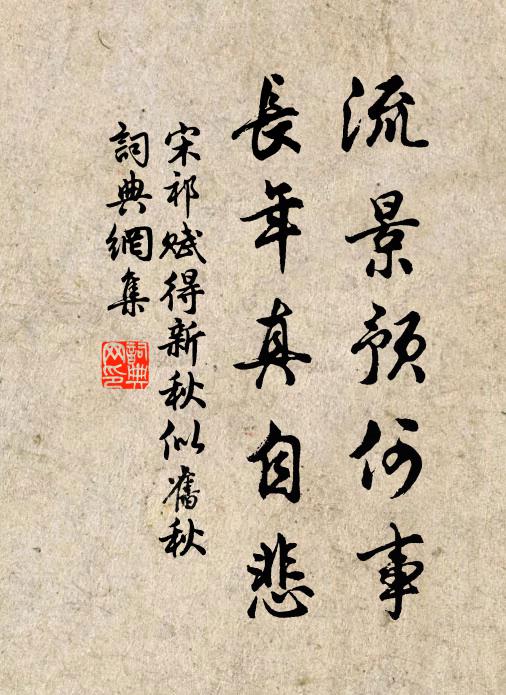 流景預何事
長年真自悲
宋祁賦得新秋似舊秋
詞典網集
詞典
网印